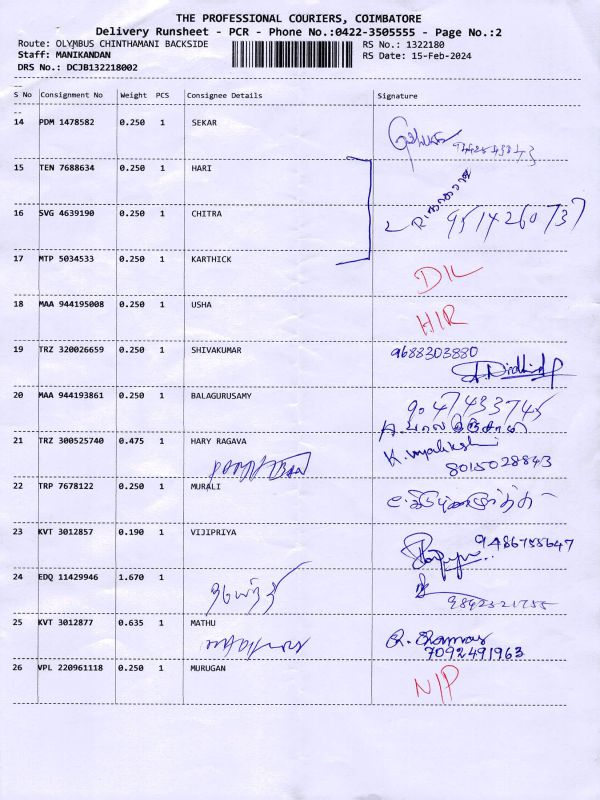 THE PROFESSIONAL COURIERS, COIMBATORE
Delivery Runsheet - PCR - Phone No.:0422-3505555 - Page No.:2
Route: OLYMBUS CHINTHAMANI BACKSIDE RS No.: 1322180
Staff: MANIKANDAN RS Date: 15-Feb-2024
DRS No.: DCJB132218002
S No Consignment No Weight PCS Consignee Details Signature
14 PDM 1478582 0.250 1 SEKAR
15 TEN 7688634 0.250 1 HARI
16 SVG 4639190 0.250 1 CHITRA 9514260737
17 MTP 5034533 0.250 1 KARTHICK D/L
18 MAA 944195008 0.250 1 USHA H/R
19 TRZ 320026659 0.250 1 SHIVAKUMAR 9688303880
20 MAA 944193861 0.250 1 BALAGURUSAMY 9047433745
21 TRZ 300525740 0.475 1 HARY RAGAVA
8015028843
22 TRP 7678122 0.250 1 MURALI
23 KVT 3012857 0.190 1 VIJIPRIYA 9486755647
24 EDQ 11429946 1.670 1
25 KVT 3012877 0.635 1 MATHU
7092491963
26 VPL 220961118 0.250 1 MURUGAN N/P